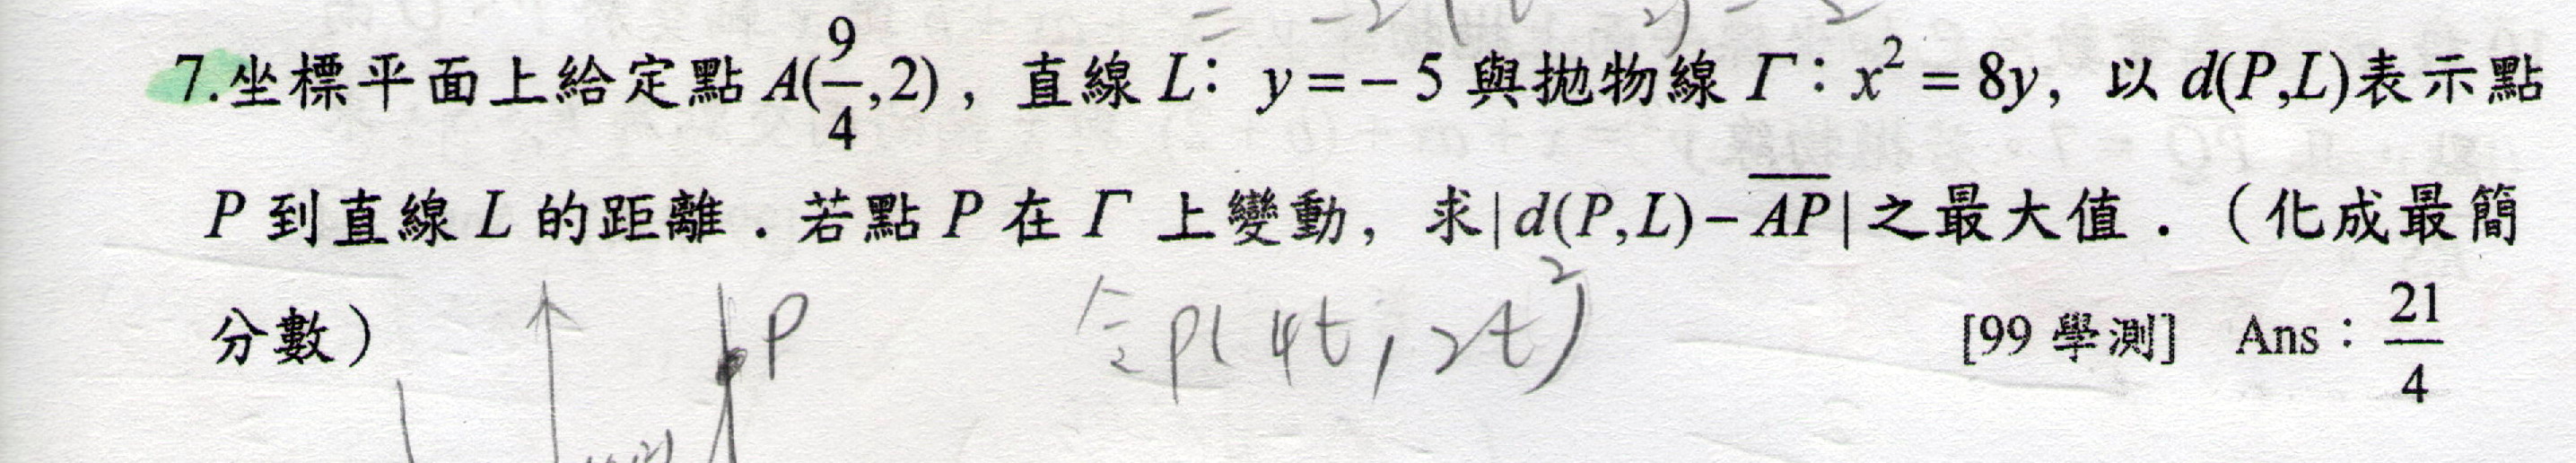 = -2(t
7.坐標平面上給定點 A(9/4,2)，直線 L：y=-5 與拋物線 Γ：x²=8y，以 d(P,L)表示點
P 到直線 L 的距離．若點 P 在 Γ 上變動，求|d(P,L)-A̅P̅|之最大值．（化成最簡
分數）
[99 學測] Ans：21/4
P
令P(4t,2t²)